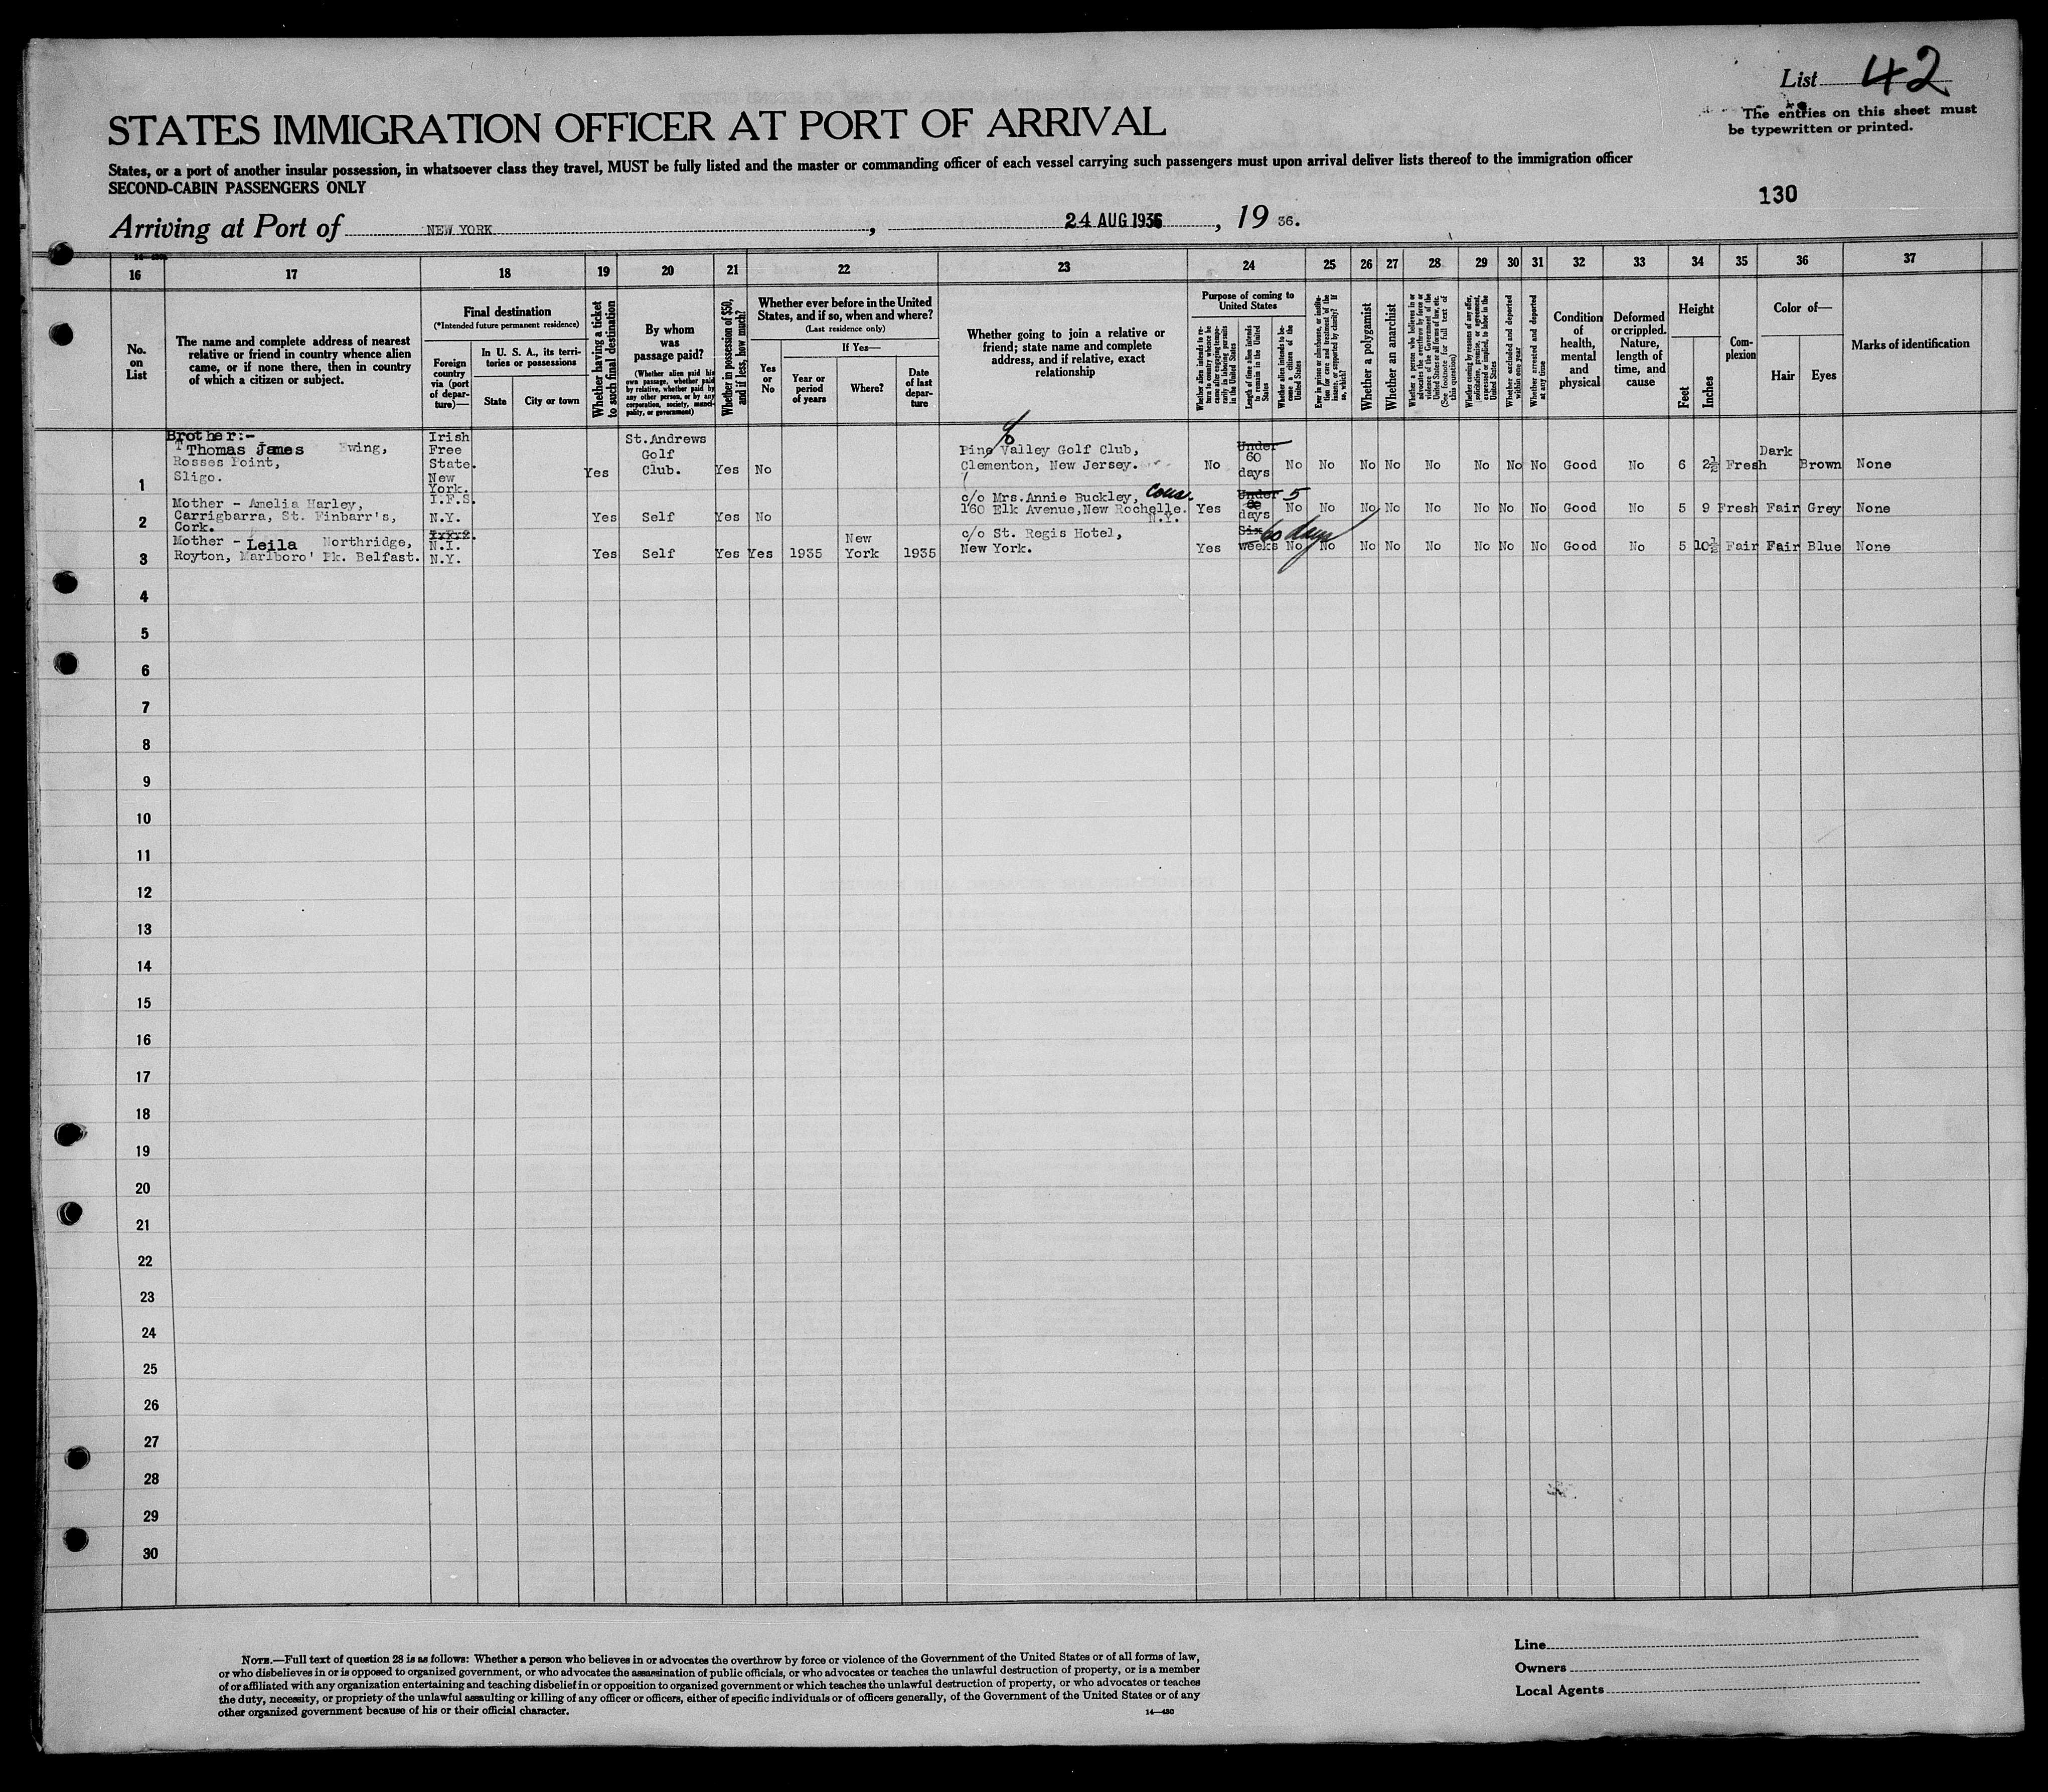 List 42
The entries on this sheet must
be typewritten or printed.
STATES IMMIGRATION OFFICER AT PORT OF ARRIVAL
States, or a port of another insular possession, in whatsoever class they travel, MUST be fully listed and the master or commanding officer of each vessel carrying such passengers must upon arrival deliver lists thereof to the immigration officer
SECOND-CABIN PASSENGERS ONLY
130
Arriving at Port of NEW YORK, 24 AUG 1936, 19 36.
16 17 18 19 20 21 22 23 24 25 26 27 28 29 30 31 32 33 34 35 36 37
No. on List
The name and complete address of nearest
relative or friend in country whence alien
came, or if none there, then in country
of which a citizen or subject.
Final destination
(*Intended future permanent residence)
Foreign country via (port of departure)—
In U. S. A., its territories or possessions
State
City or town
Whether having a ticket to such final destination
By whom was passage paid?
(Whether alien paid his own passage, whether paid by relative, whether paid by any other person, or by any corporation, society, municipality, or government)
Whether in possession of $50, and if less, how much?
Whether ever before in the United States, and if so, when and where?
(Last residence only)
Yes or No
If Yes—
Year or period of years
Where?
Date of last departure
Whether going to join a relative or
friend; state name and complete
address, and if relative, exact
relationship
Purpose of coming to United States
Whether alien intends to return to country whence he came after engaging temporarily in laboring pursuits in the United States
Length of time alien intends to remain in the United States
Whether alien intends to become a citizen of the United States
Ever in prison or almshouse, or institution for care and treatment of the insane, or supported by charity? If so, which?
Whether a polygamist
Whether an anarchist
Whether a person who believes in or advocates the overthrow by force or violence of the Government of the United States or all forms of law, etc. (See footnote for full text of this question)
Whether coming by reason of any offer, solicitation, promise, or agreement, expressed or implied, to labor in the United States
Whether excluded and deported within one year
Whether arrested and deported at any time
Condition of health, mental and physical
Deformed or crippled. Nature, length of time, and cause
Height
Feet
Inches
Complexion
Color of—
Hair
Eyes
Marks of identification
1 Brother:- Thomas James Ewing, Rosses Point, Sligo. Irish Free State. New York. Yes St. Andrews Golf Club. Yes No c/o Pine Valley Golf Club, Clementon, New Jersey. No Under 60 days No No No No No No No No Good No 6 2½ Fresh Dark Brown None
2 Mother - Amelia Harley, Carrigbarra, St. Finbarr's, Cork. I.F.S. N.Y. Yes Self Yes No c/o Mrs. Annie Buckley, Cous. 160 Elk Avenue, New Rochelle. N.Y. Yes Under 5 days No No No No No No No No Good No 5 9 Fresh Fair Grey None
3 Mother - Leila Northridge, Royton, Marlboro' Pk. Belfast. N.I. N.Y. Yes Self Yes Yes 1935 New York 1935 c/o St. Regis Hotel, New York. Yes Six weeks 60 days No No No No No No No No Good No 5 10½ Fair Fair Blue None
4
5
6
7
8
9
10
11
12
13
14
15
16
17
18
19
20
21
22
23
24
25
26
27
28
29
30
NOTE.—Full text of question 28 is as follows: Whether a person who believes in or advocates the overthrow by force or violence of the Government of the United States or of all forms of law,
or who disbelieves in or is opposed to organized government, or who advocates the assassination of public officials, or who advocates or teaches the unlawful destruction of property, or is a member
of or affiliated with any organization entertaining and teaching disbelief in or opposition to organized government or which teaches the unlawful destruction of property, or who advocates or teaches
the duty, necessity, or propriety of the unlawful assaulting or killing of any officer or officers, either of specific individuals or of officers generally, of the Government of the United States or of any
other organized government because of his or their official character.
14—430
Line
Owners
Local Agents